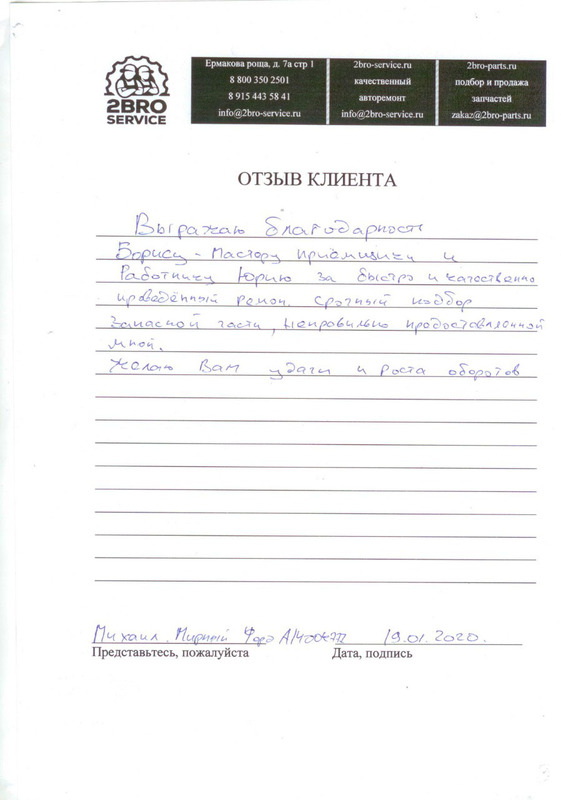 2BRO
SERVICE
Ермакова роща, д. 7а стр 1
8 800 350 2501
8 915 443 58 41
info@2bro-service.ru
2bro-service.ru
качественный
авторемонт
info@2bro-service.ru
2bro-parts.ru
подбор и продажа
запчастей
zakaz@2bro-parts.ru
ОТЗЫВ КЛИЕНТА
Выражаю благодарность
Борису - Мастору приёмщику и
Работнику Юрию за быстро и качественно
проведённый ремонт. срочный подбор
Запасной части, неправильно предоставленной
мной.
Желаю Вам удачи и Роста оборотов
Михаил. Мирный Форд 19.01.2020.
Представьтесь, пожалуйста Дата, подпись